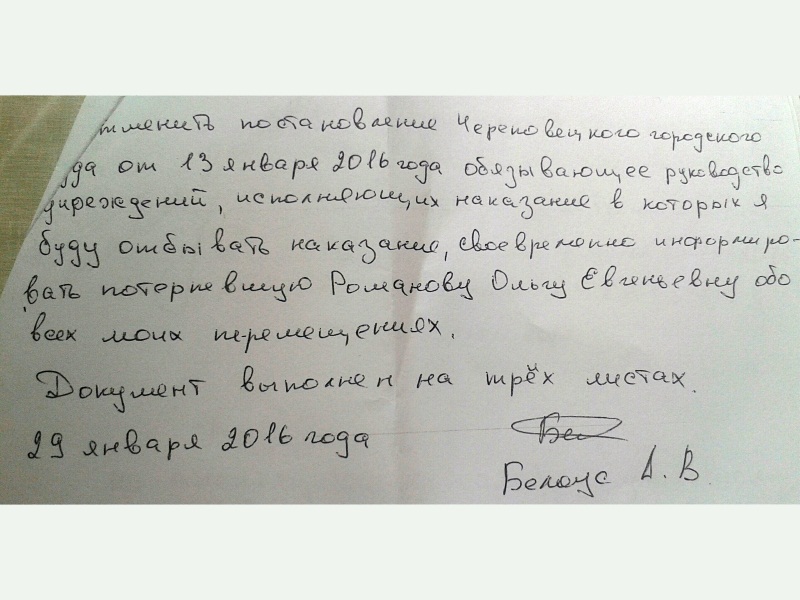 тменить постановление Череповецкого городского
уда от 13 января 2016 года обязывающее руководство
учреждений, исполняющих наказание в которых я
буду отбывать наказание, своевременно информиро-
вать потерпевшую Романову Ольгу Евгеньевну обо
всех моих перемещениях.
Документ выполнен на трёх листах.
29 января 2016 года
Бел
Белоус А. В.